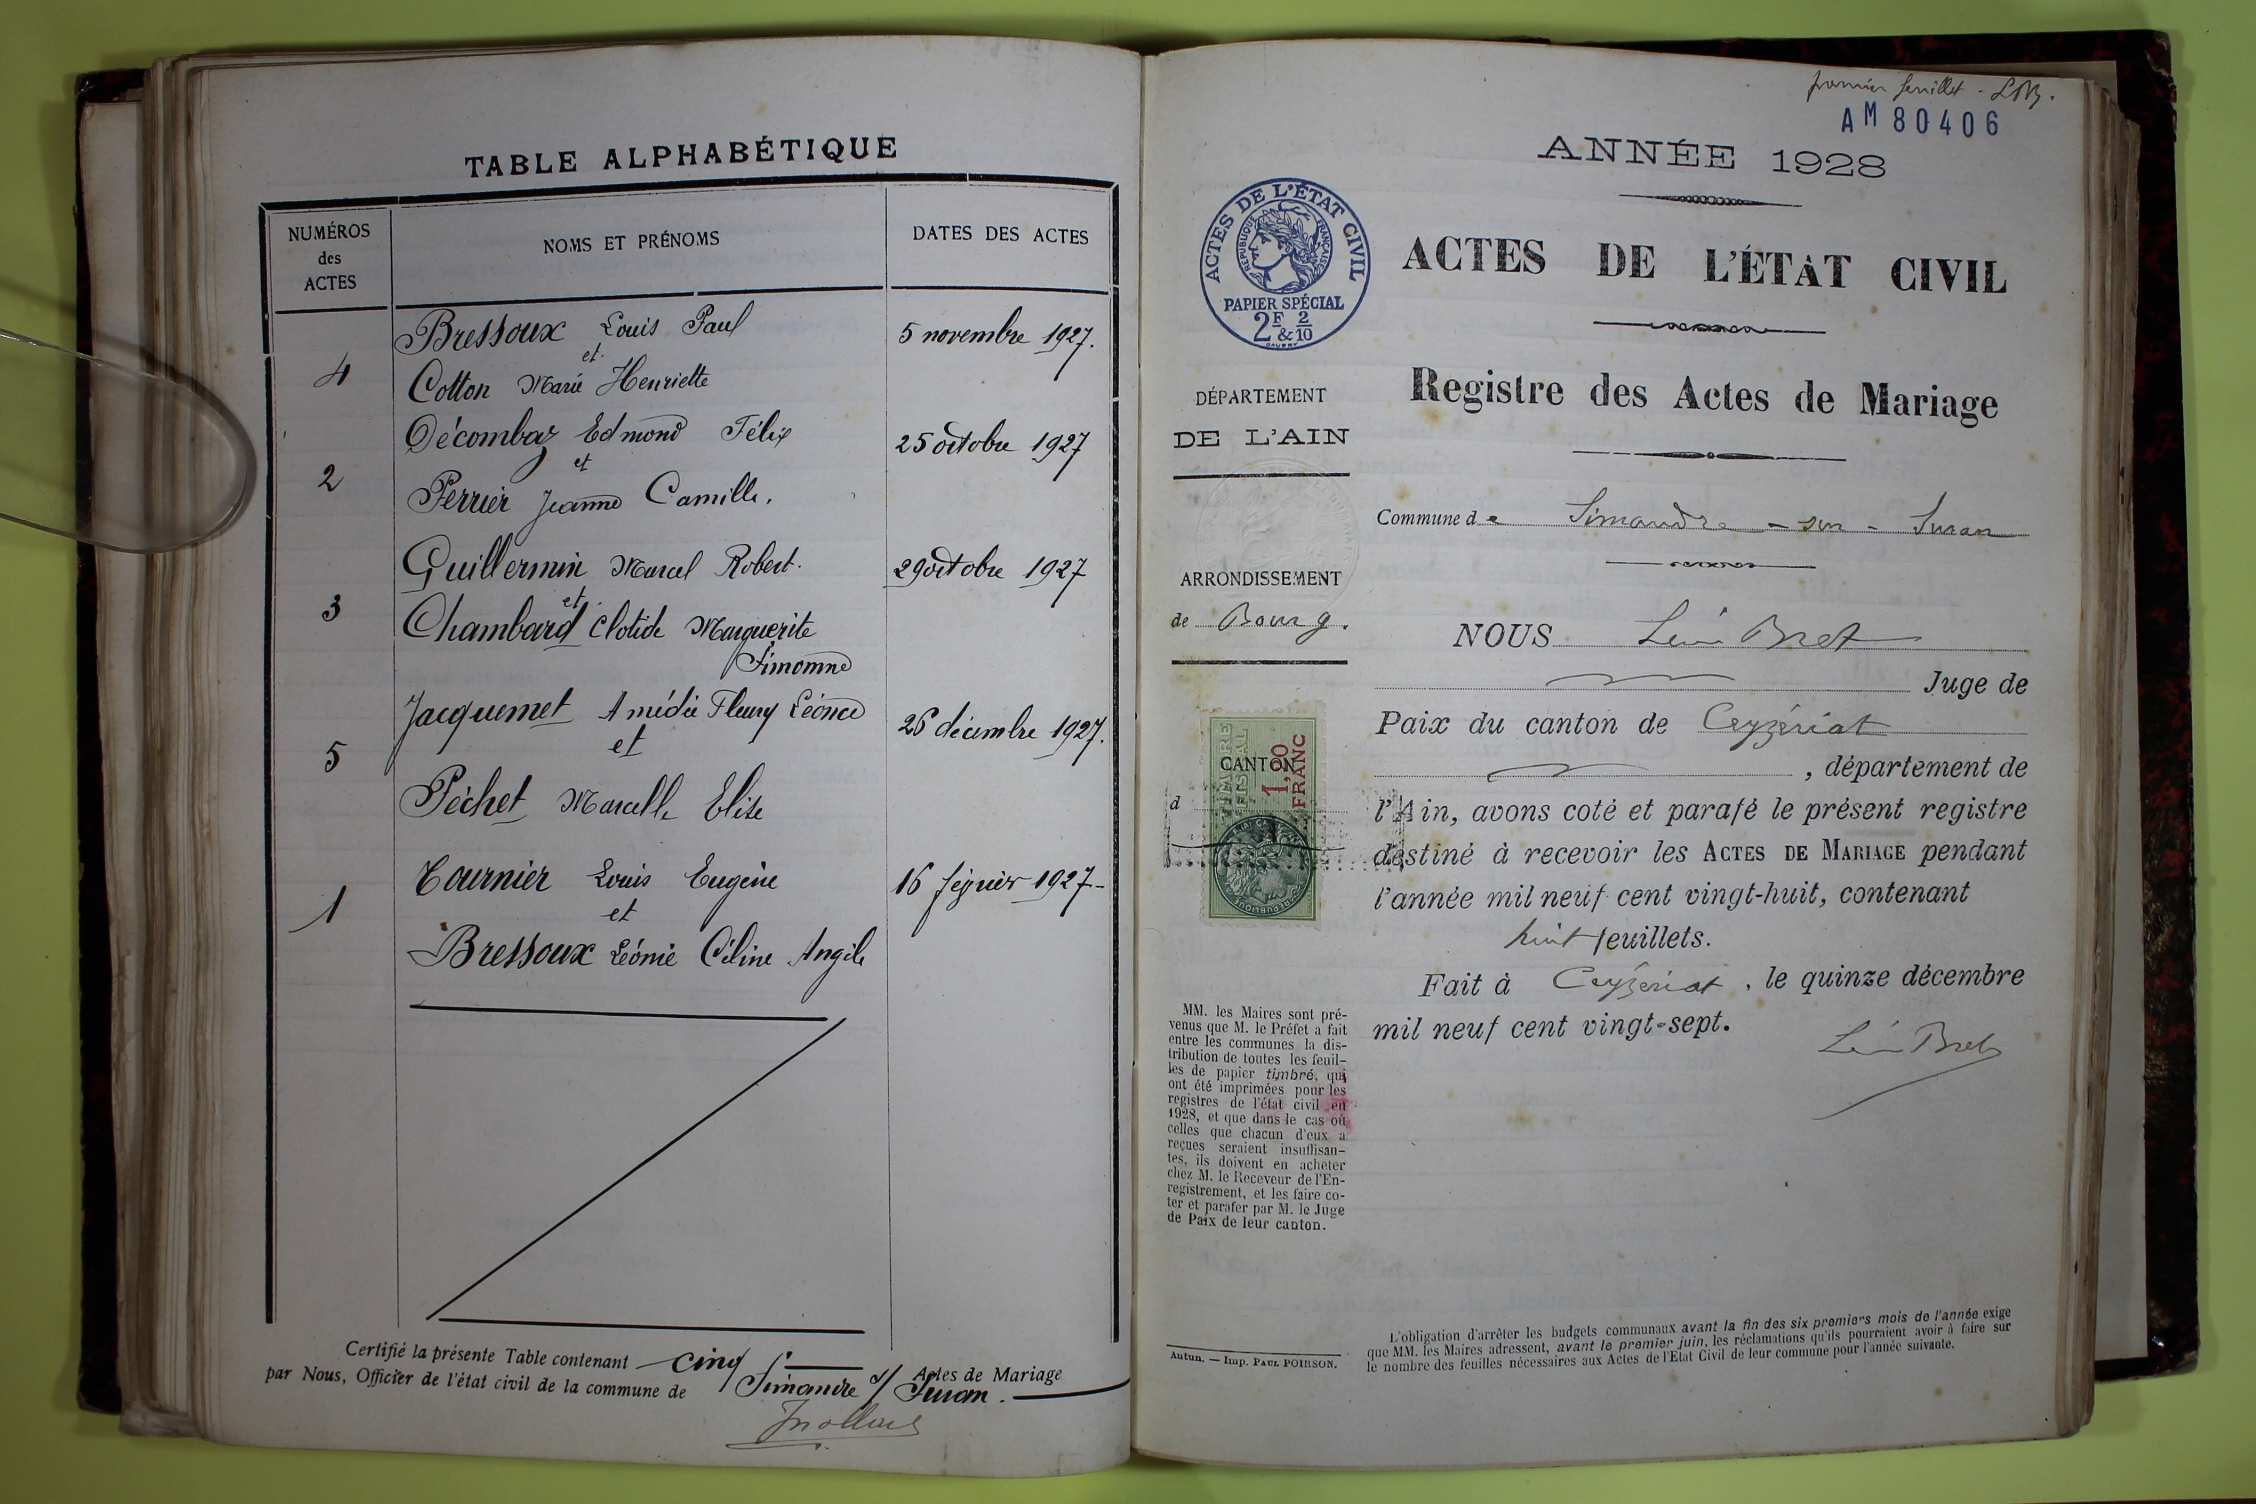 TABLE ALPHABÉTIQUE
NUMÉROS
des
ACTES
NOMS ET PRÉNOMS
DATES DES ACTES
Bressoux Louis Paul
5 novembre 1927.
et
4
Cotton Marie Henriette
Décombaz Edmond Félix
25 octobre 1927
et
2
Perrier Jeanne Camille.
Guillermin Marcel Robert.
29 octobre 1927
et
3
Chambard Clotide Marguerite
Simonne
Jacquemet Amédée Fleury Léonce
26 décembre 1927.
et
5
Péchet Marcelle Elise
Tournier Louis Eugène
16 février 1927-
et
1
Bressoux Léonie Céline Angèle
Certifié la présente Table contenant cinq Actes de Mariage
par Nous, Officier de l'état civil de la commune de Simandre s/ Suran.
premier feuillet - LB.
AM 80406
ANNÉE 1928
ACTES DE L'ÉTAT CIVIL
RÉPUBLIQUE FRANÇAISE
PAPIER SPÉCIAL
2F & 2/10
ACTES DE L'ÉTAT CIVIL
Registre des Actes de Mariage
DÉPARTEMENT
DE L'AIN
Commune de Simandre-sur-Suran
ARRONDISSEMENT
de Bourg.
NOUS Léon Bret
Juge de
Paix du canton de Ceyzériat
, département de
TIMBRE
FISCAL
1,20
FRANC
CANTON
d
l'Ain, avons coté et parafé le présent registre
destiné à recevoir les ACTES DE MARIAGE pendant
l'année mil neuf cent vingt-huit, contenant
huit feuillets.
Fait à Ceyzériat, le quinze décembre
mil neuf cent vingt-sept.
Léon Bret
MM. les Maires sont pré-
venus que M. le Préfet a fait
entre les communes la dis-
tribution de toutes les feuil-
les de papier timbré, qui
ont été imprimées pour les
registres de l'état civil en
1928, et que dans le cas où
celles que chacun d'eux a
reçues seraient insuffisan-
tes, ils doivent en acheter
chez M. le Receveur de l'En-
registrement, et les faire co-
ter et parafer par M. le Juge
de Paix de leur canton.
Autun. — Imp. PAUL POIRSON.
L'obligation d'arrêter les budgets communaux avant la fin des six premiers mois de l'année exige
que MM. les Maires adressent, avant le premier juin, les réclamations qu'ils pourraient avoir à faire sur
le nombre des feuilles nécessaires aux Actes de l'Etat Civil de leur commune pour l'année suivante.